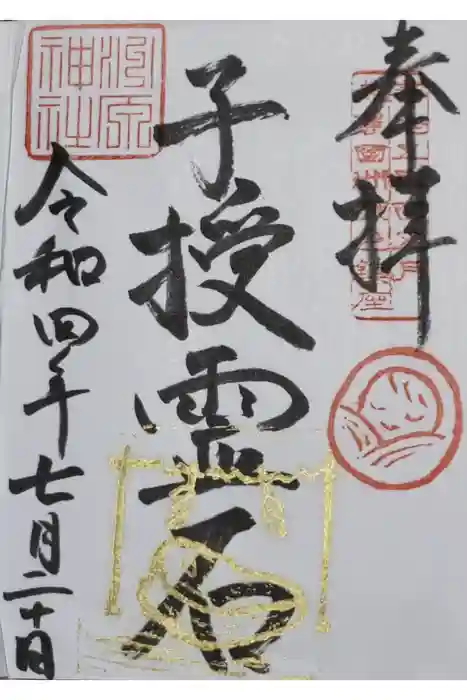 奉拝
子授霊石
令和四年七月二十日
河原神社